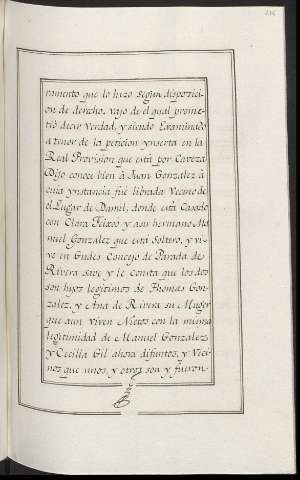 ramento que lo hizo segun disposici
on de derecho, vajo de el qual prome
tió decir Verdad, y siendo Examinado
a tenor de la peticion ynserta en la
Real Provision que está por Caveza
Dijo conoce bien à Juan Gonzalez à
cuia ynstancia fué librada Vecino de
el Lugar de Damil, donde está Casado
con Clara Feixoó y a su hermano Ma
nuel Gonzalez que está Soltero, y vi
ve en Gudes Concejo de Parada de
Rivera save y le Consta que los dos
son hijos legitimos de Thomas Gon
zalez, y Ana de Rivera su Muger
que aun Viven Nietos con la misma
legitimidad de Manuel Gonzalez
y Cecilia Gil ahora difuntos, y Veci
nos que unos, y otros son y fueron